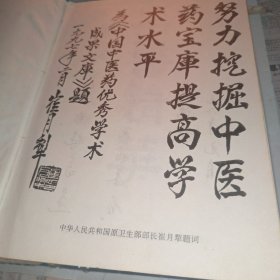 努力挖掘中医
药宝库提高学
术水平
为《中国中医药优秀学术
成果文库》题
一九九七年二月
崔月犁
中华人民共和国原卫生部部长崔月犁题词